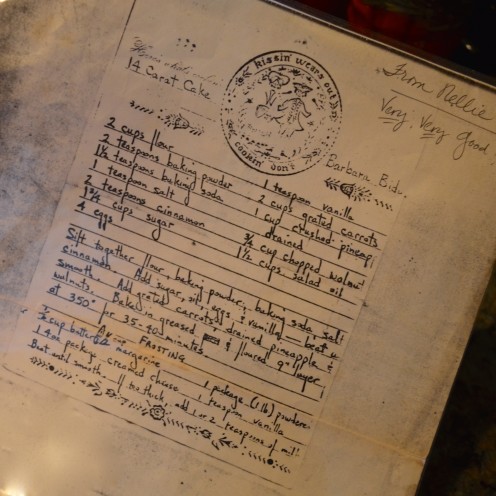 From Nellie
Very, Very Good
14 Carat Cake
kissin' wears out
cookin' don't
Barbara
2 cups flour
2 teaspoons baking powder
1½ teaspoons baking soda
1 teaspoon salt
2 teaspoons cinnamon
1¾ cups sugar
4 eggs
1 teaspoon vanilla
2 cups grated carrots
1 cup crushed
drained
¾ cup chopped
1½ cups salad oil
Sift together flour, baking powder, baking soda, salt
cinnamon. Add sugar, oil, eggs & vanilla
smooth. Add grated carrots, drained pineapple &
walnuts. Baked in greased & floured 9" layer
at 350° for 35-40 minutes.
FROSTING
½ cup butter or margerine
1 package (1 lb) powdere
1 teaspoon vanilla
Beat until smooth. If to thick, add 1 or 2 teaspoons of